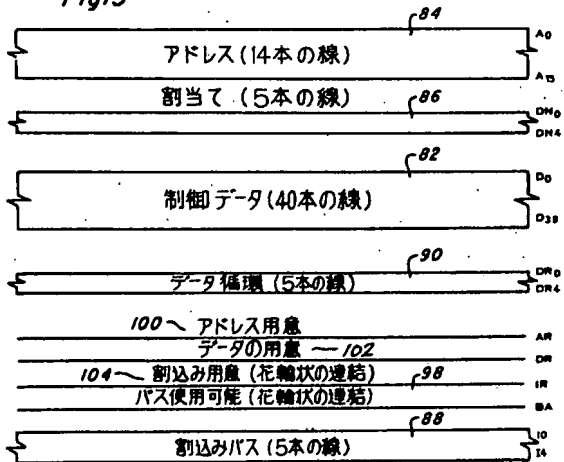 Fig13
84
アドレス(14本の線)
A0
A13
割当て(5本の線)
86
DN0
DN4
82
制御データ(40本の線)
D0
D39
90
データ循環(5本の線)
DR0
DR4
100 アドレス用意
AR
データの用意 102
DR
104 割込み用意(花輪状の連結) 98
IR
バス使用可能(花輪状の連結)
BA
88
割込みバス(5本の線)
I0
I4